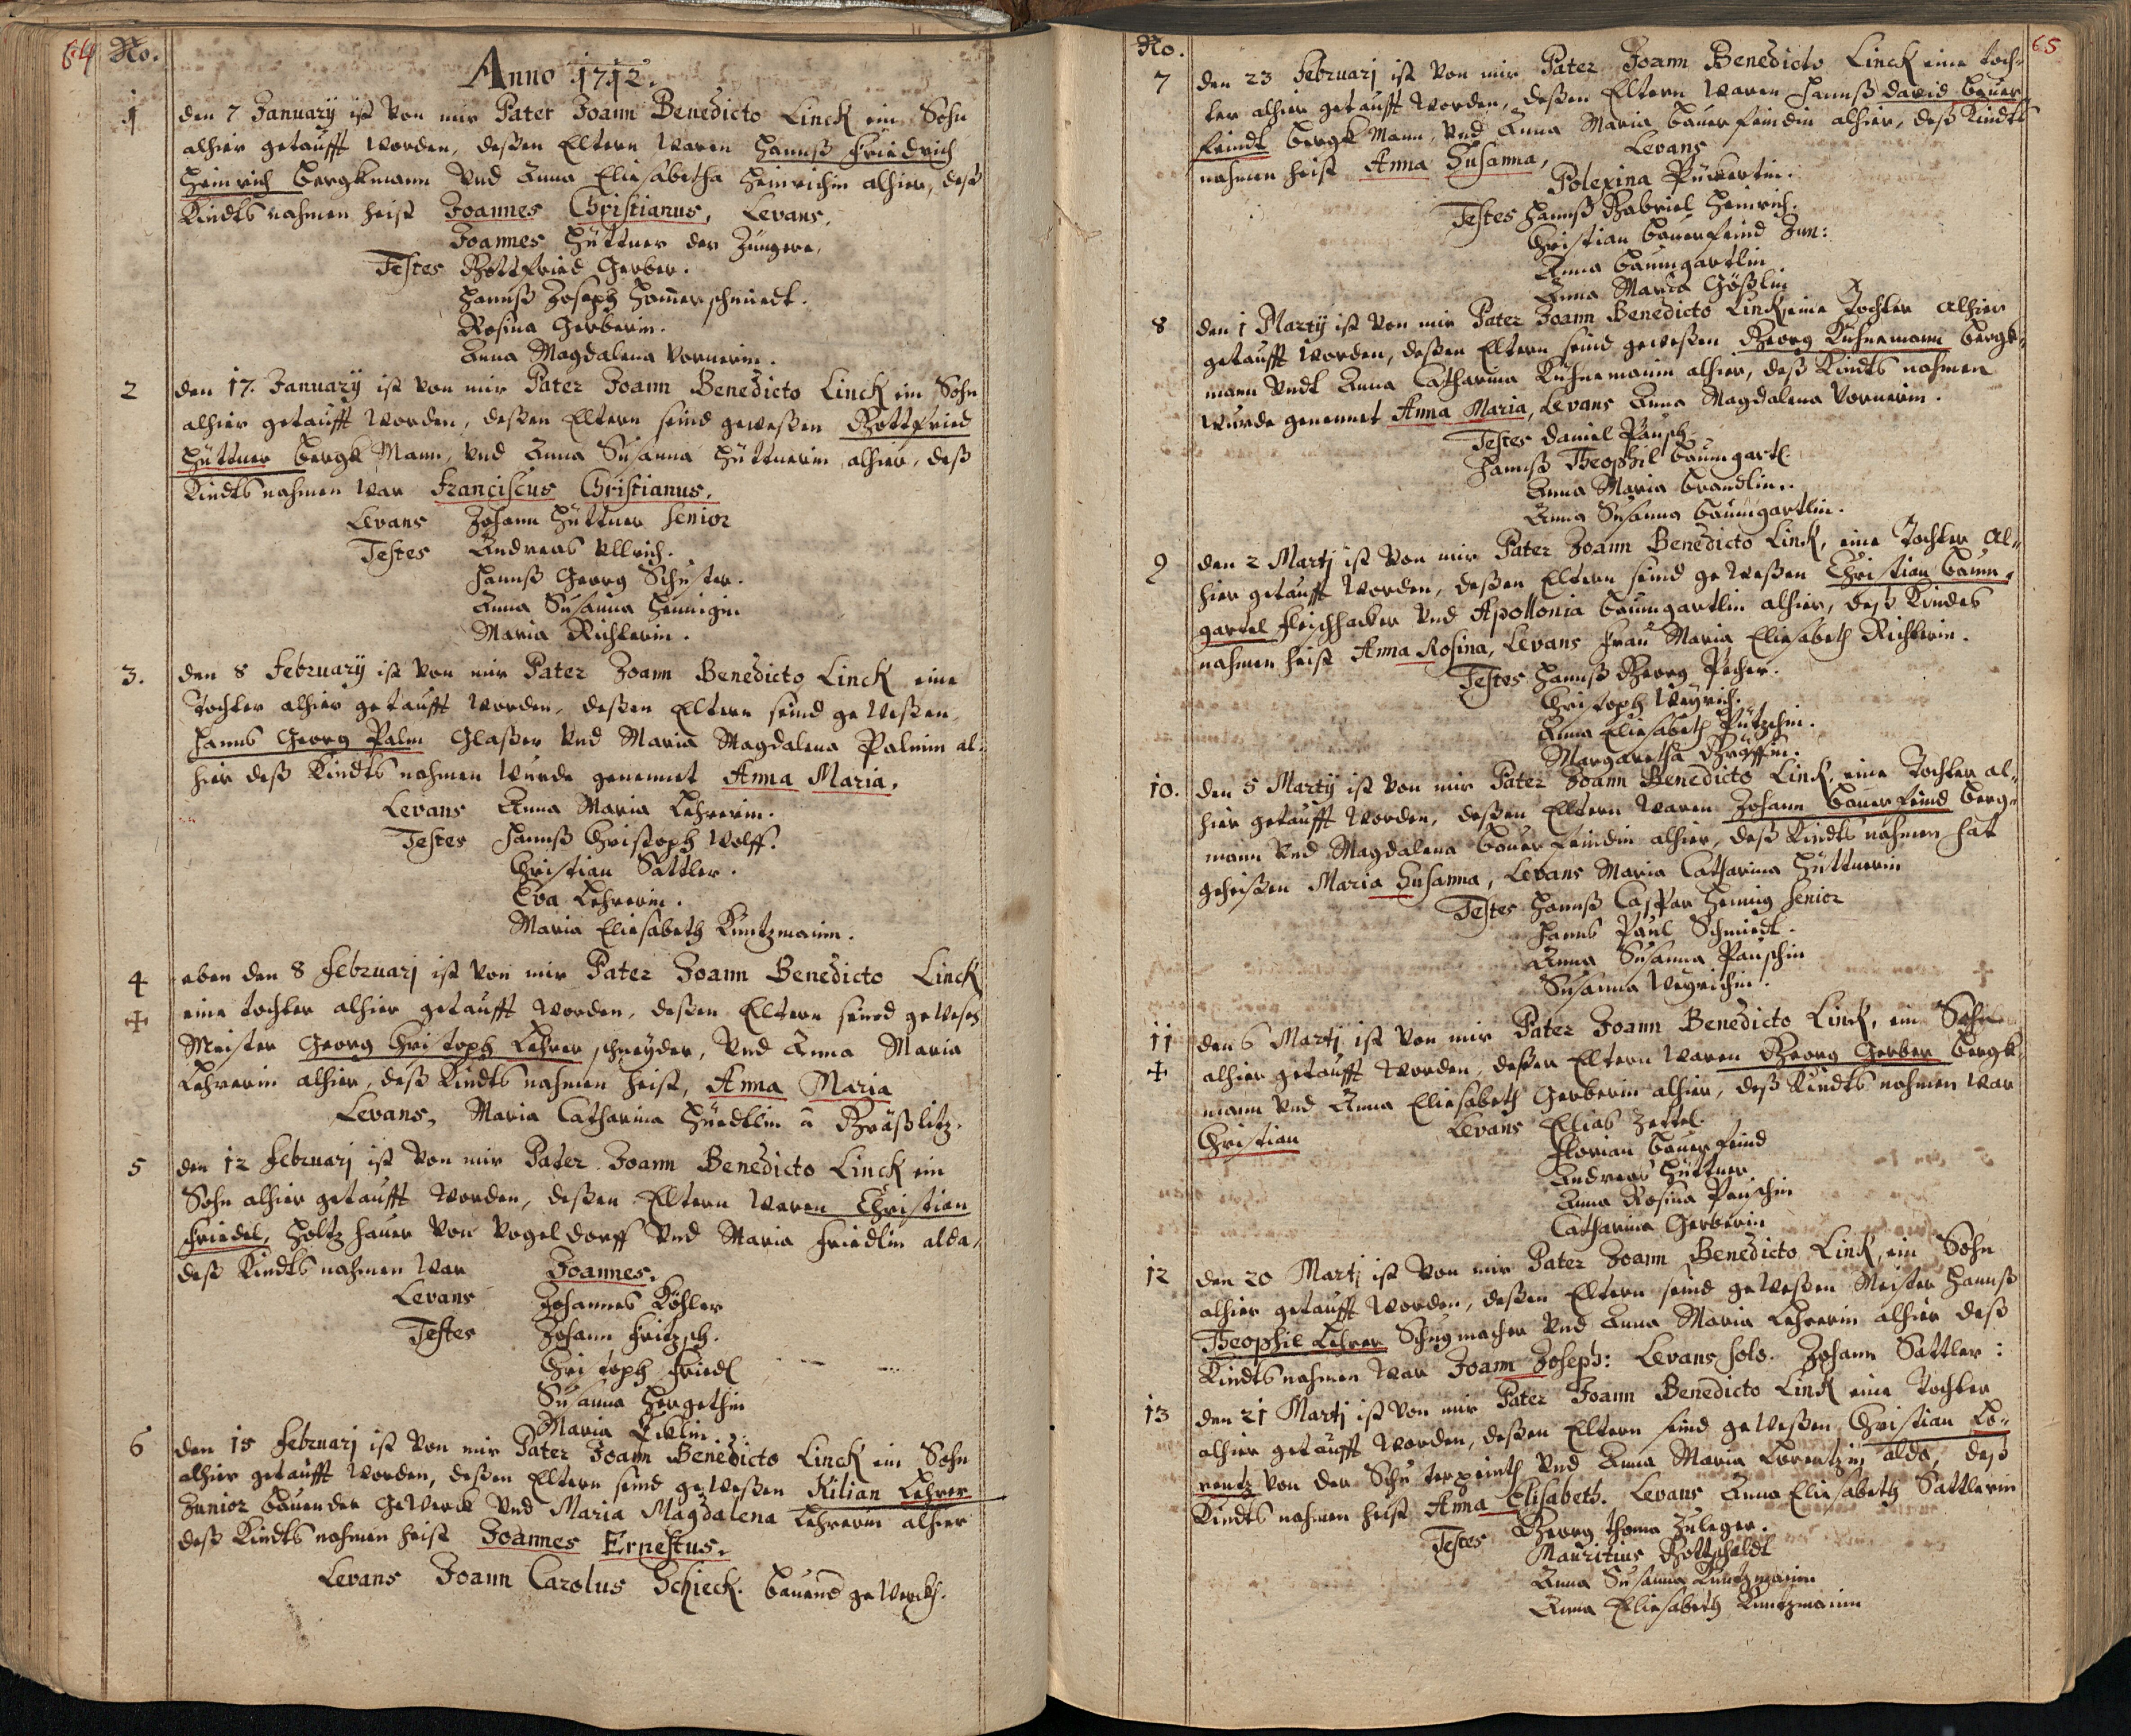 64
No.
Anno 1712.
1
den 7 January ist von mir Pater Joann Benedicto Linck ein Sohn
alhier getaufft worden, deßen Eltern waren Hannß Friedrich
Heinrich Bergkmann und Anna Eliesabetha Heinrichin alhier, deß
Kindts nahmen heist Joannes Christianus, Levans,
Joannes Hüttner der Jüngere,
Testes Gottfried Gerber.
Hannß Joseph Hamerschmiedt.
Rosina Gerberin.
Anna Magdalena Vornerin.
2
den 17. January ist von mir Pater Joann Benedicto Linck ein Sohn
alhier getaufft worden, deßen Eltern seind geweßen Gottfried
Hüttner Bergk Mann, und Anna Susanna Hüttnerin alhier, deß
Kindts nahmen war Franciscus Christianus,
Levans Johann Hüttner senior
Testes Andreas Ullrich.
Hannß Georg Schuster.
Anna Susanna Hennigin
Maria Richterin.
3.
den 8 February ist von mir Pater Joann Benedicto Linck eine
Tochter alhier getaufft worden, deßen Eltern seind geweßen
Hanns Georg Palm Glaßer und Maria Magdalena Palmin al-
hier deß Kindts nahmen wurde genennet Anna Maria,
Levans Anna Maria Lehrerin.
Testes Hannß Christoph Wolff.
Christian Sattler.
Eva Lehrerin.
Maria Eliesabeth Kuntzmanin.
4
eben den 8 Februarj ist von mir Pater Joann Benedicto Linck
eine tochter alhier getaufft worden, deßen Eltern seind geweßen
Meister Georg Christoph Lehrer schneyder, und Anna Maria
Lehrerin alhier, deß Kindts nahmen heist, Anna Maria
Levans, Maria Catharina a Graßlitz.
5
den 12 Februarj ist von mir Pater Joann Benedicto Linck ein
Sohn alhier getaufft worden, deßen Eltern waren Christian
Friedel, Holtz hauer von Vogeldorff und Maria Friedlin alda,
deß Kindts nahmen war Joannes,
Levans Johannes Köhler
Testes Johann Fritzsch.
Christoph Friedl
Susanna Hergethin
Maria
6
den 15 Februarj ist von mir Pater Joann Benedicto Linck ein Sohn
alhier getaufft worden, deßen Eltern seind geweßen Kilian Lehrer
Junior Bauender Gewerck und Maria Magdalena Lehrerin alhier
deß Kindts nahmen heist Joannes Ernestus,
Levans Joann Carolus Schieck. bauend gewerck.
65
No.
7
den 23 Februarj ist von mir Pater Joann Benedicto Linck eine toch-
ter alhier getaufft worden, deßen Eltern waren Hannß David Bauer
feindt Bergk Mann, und Anna Maria Bauerfeindin alhier, deß Kindts
nahmen heist Anna Susanna, Levans
Polexina Pückertin.
Testes Hannß Gabriel Heinrich.
Christian Bauerfeind Jun:
Anna Baumgartlin
Anna Maria Gößlin
8
den 1 Martij ist von mir Pater Joann Benedicto Linck eine Tochter alhier
getaufft worden, deßen Eltern seind geweßen Georg Kuhnemann Bergk-
mann undt Anna Catharina Kuhnemanin alhier, deß Kindts nahmen
wurde genennet Anna Maria, Levans Anna Magdalena Vornerin.
Testes Daniel Pausch
Hannß Theophil Baumgartl
Anna Maria Brandlin.
Anna Susanna Baumgartlin.
9
den 2 Martj ist von mir Pater Joann Benedicto Linck, eine Tochter al-
hier getaufft worden, deßen Eltern seind geweßen Christian Baum-
gartel Fleischhacker und Apollonia Baumgartlin alhier, deß Kindes
nahmen heist Anna Rosina, Levans Frau Maria Eliesabeth Richterin.
Testes Hannß Georg Pecher.
Christoph Weyrich.
Anna Eliesabeth
Margaretha
10.
den 5 Martij ist von mir Pater Joann Benedicto Linck, eine Tochter al-
hier getaufft worden, deßen Eltern waren Johann Bauerfeind Berg-
mann und Magdalena Bauerfeindin alhier, deß Kindts nahmen hat
geheißen Maria Susanna, Levans Maria Catharina Hüttnerin
Testes Hannß Caspar Hennig senior
Hanns Paul Schmiedt.
Anna Susanna Pauschin
Susanna Weyrichin.
11
den 6 Martj ist von mir Pater Joann Benedicto Linck, ein Sohn
alhier getaufft worden, deßen Eltern waren Georg Gerber Bergk-
mann und Anna Eliesabeth Gerberin alhier, deß Kindts nahmen war
Christian Levans Elias Zettel.
Florian Bauerfeind
Andreas Hüttner
Anna Rosina Pauschin
Catharina Gerberin
12
den 20 Martj ist von mir Pater Joann Benedicto Linck, ein Sohn
alhier getaufft worden, deßen Eltern seind geweßen Meister Hannß
Theophil Lehrer Schugmacher und Anna Maria Lehrerin alhier deß
Kindts nahmen war Joann Joseph: Levans solo. Johann Sattler:
13
den 21 Martj ist von mir Pater Joann Benedicto Linck eine Tochter
alhier getaufft worden, deßen Eltern seind geweßen Christian Lo-
rentz von der und Anna Maria Lorentzin alda, deß
Kindts nahmen heist Anna Elisabeth. Levans Anna Eliesabeth Sattlerin
Testes Georg Thoma Zuleger.
Mauritius Gottscheldt
Anna Susanna Kuntzmanin
Anna Eliesabeth Kuntzmanin